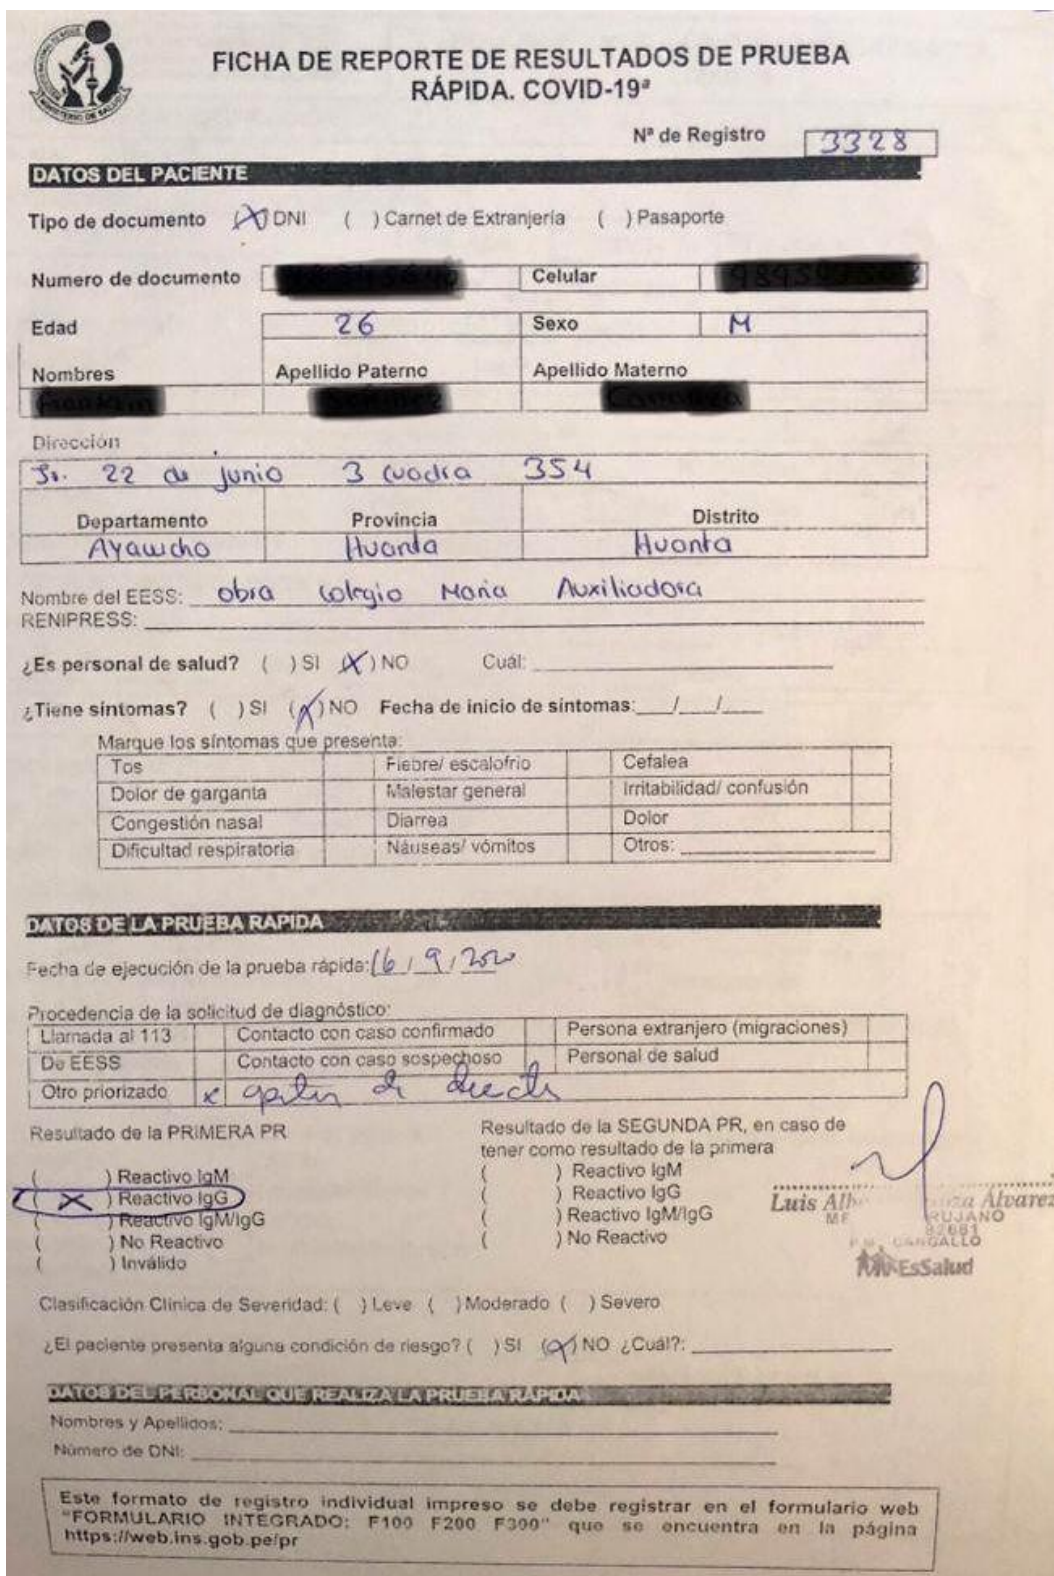 FICHA DE REPORTE DE RESULTADOS DE PRUEBA
RÁPIDA. COVID-19ª
Nª de Registro 3328
DATOS DEL PACIENTE
Tipo de documento (X) DNI ( ) Carnet de Extranjería ( ) Pasaporte
Numero de documento Celular
Edad 26 Sexo M
Nombres Apellido Paterno Apellido Materno
Dirección
Jr. 22 de junio 3 cuadra 354
Departamento Provincia Distrito
Ayawcho Huanta Huanta
Nombre del EESS: obra colegio Maria Auxiliadora
RENIPRESS:
¿Es personal de salud? ( ) SI (X) NO Cuál:
¿Tiene síntomas? ( ) SI (X) NO Fecha de inicio de síntomas: / /
Marque los síntomas que presenta:
Tos Fiebre/ escalofrio Cefalea
Dolor de garganta Malestar general Irritabilidad/ confusión
Congestión nasal Diarrea Dolor
Dificultad respiratoria Náuseas/ vómitos Otros:
DATOS DE LA PRUEBA RAPIDA
Fecha de ejecución de la prueba rápida: 16 / 9 / 2020
Procedencia de la solicitud de diagnóstico:
Llamada al 113 Contacto con caso confirmado Persona extranjero (migraciones)
De EESS Contacto con caso sospechoso Personal de salud
Otro priorizado x
Resultado de la PRIMERA PR
( ) Reactivo IgM
( X ) Reactivo IgG
( ) Reactivo IgM/IgG
( ) No Reactivo
( ) Inválido
Resultado de la SEGUNDA PR, en caso de
tener como resultado de la primera
( ) Reactivo IgM
( ) Reactivo IgG
( ) Reactivo IgM/IgG
( ) No Reactivo
Luis Álvarez
EsSalud
Clasificación Clínica de Severidad: ( ) Leve ( ) Moderado ( ) Severo
¿El paciente presenta alguna condición de riesgo? ( ) SI (X) NO ¿Cuál?:
DATOS DEL PERSONAL QUE REALIZA LA PRUEBA RÁPIDA
Nombres y Apellidos:
Número de DNI:
Este formato de registro individual impreso se debe registrar en el formulario web
"FORMULARIO INTEGRADO: F100 F200 F300" que se encuentra en la página
https://web.ins.gob.pe/pr